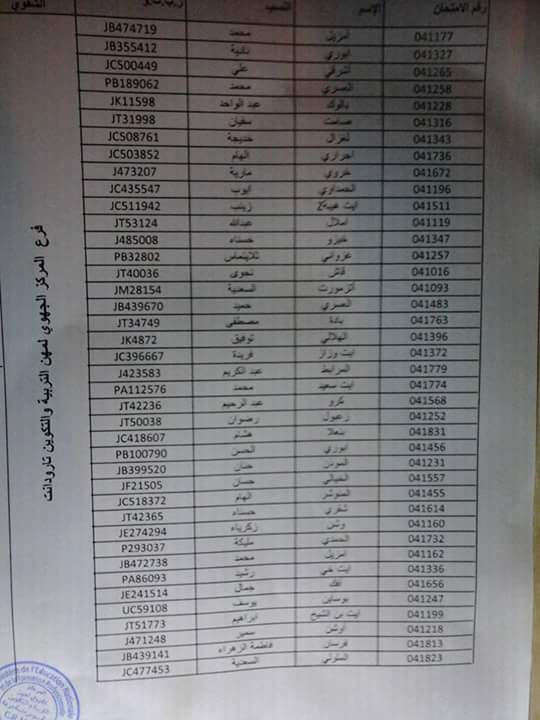 رقم الامتحان الإسم
041177 امزيل محمد JB474719
041327 ابوري نادية JB355412
041265 اشرقي علي JC500449
041258 العسري محمد PB189062
041228 بالوك عبد الواحد JK11598
041316 صامت سفيان JT31998
041343 لغزال خديجة JC508761
041736 اجراري الهام JC503852
041672 خروي مارية J473207
041196 الحمداوي ايوب JC435547
041511 ايت زينب JC511942
041119 املال عبدالله JT53124
041347 خيرو حسناء J485008
041257 عزواني PB32802
041016 قاش نجوى JT40036
041093 السعدية JM28154
041483 العسري حميد JB439670
041763 بادة مصطفى JT34749
041396 الهلالي توفيق JK4872
041372 ايت وزار فريدة JC396667
041779 المرابط عبد الكريم J423583
041774 ايت سعيد محمد PA112576
041568 كرو عبد الرحيم JT42236
041252 زعبول رضوان JT50038
041831 بنعلا هشام JC418607
041456 ابوري الحسن PB100790
041231 حسان JB399520
041557 الخيالي حسان JF21505
041455 الهام JC518372
041614 شقري حسناء JT42365
041160 وشن زكرياء JE274294
041732 الحمدي مليكة P293037
041162 امزيل محمد JB472738
041336 ايت حي رشيد PA86093
041656 افك جمال JE241514
041247 بوساين يوسف UC59108
041199 ايت بن الشيخ ابراهيم JT51773
041218 اوشن سمير J471248
041813 فرسان فاطمة الزهراء JB439141
041823 السعدية JC477453
فرع المركز الجهوي لمهن التربية والتكوين تارودانت